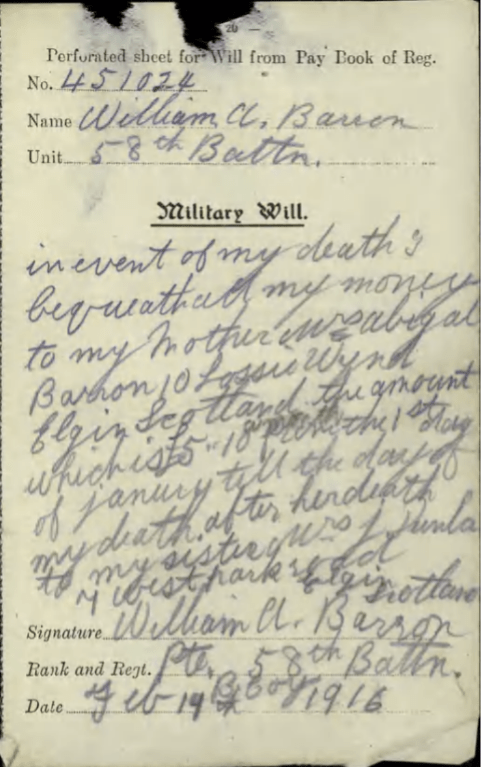 — 20 —
Perforated sheet for Will from Pay Book of Reg.
No. 451024
Name William A. Barron
Unit 58th Battn.
Military Will.
in event of my death I
bequeath all my money
to my Mother Mrs abigal
Barron 10 Lossie Wynd
Elgin Scotland the amount
which is $15 the 1st day
of janury till the day of
my death. after her death
to my sister Mrs J.
7 west park road Elgin Scotland
Signature William A. Barron
Rank and Regt. Pte. 58th Battn.
Date Feb 14 B Coy 1916